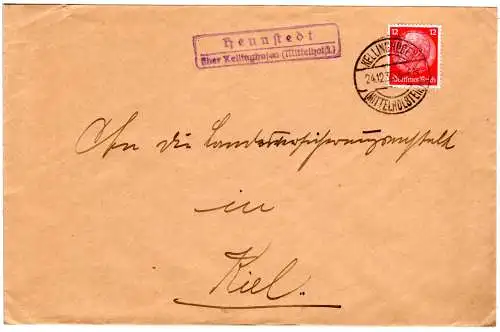 Hennstedt
über Kellinghusen (Mittelholst.)
12 12
Deutsches Reich
KELLINGHUSEN
24.12.3
(MITTELHOLSTEIN)
An die Landesversicherungsanstalt
in
Kiel.